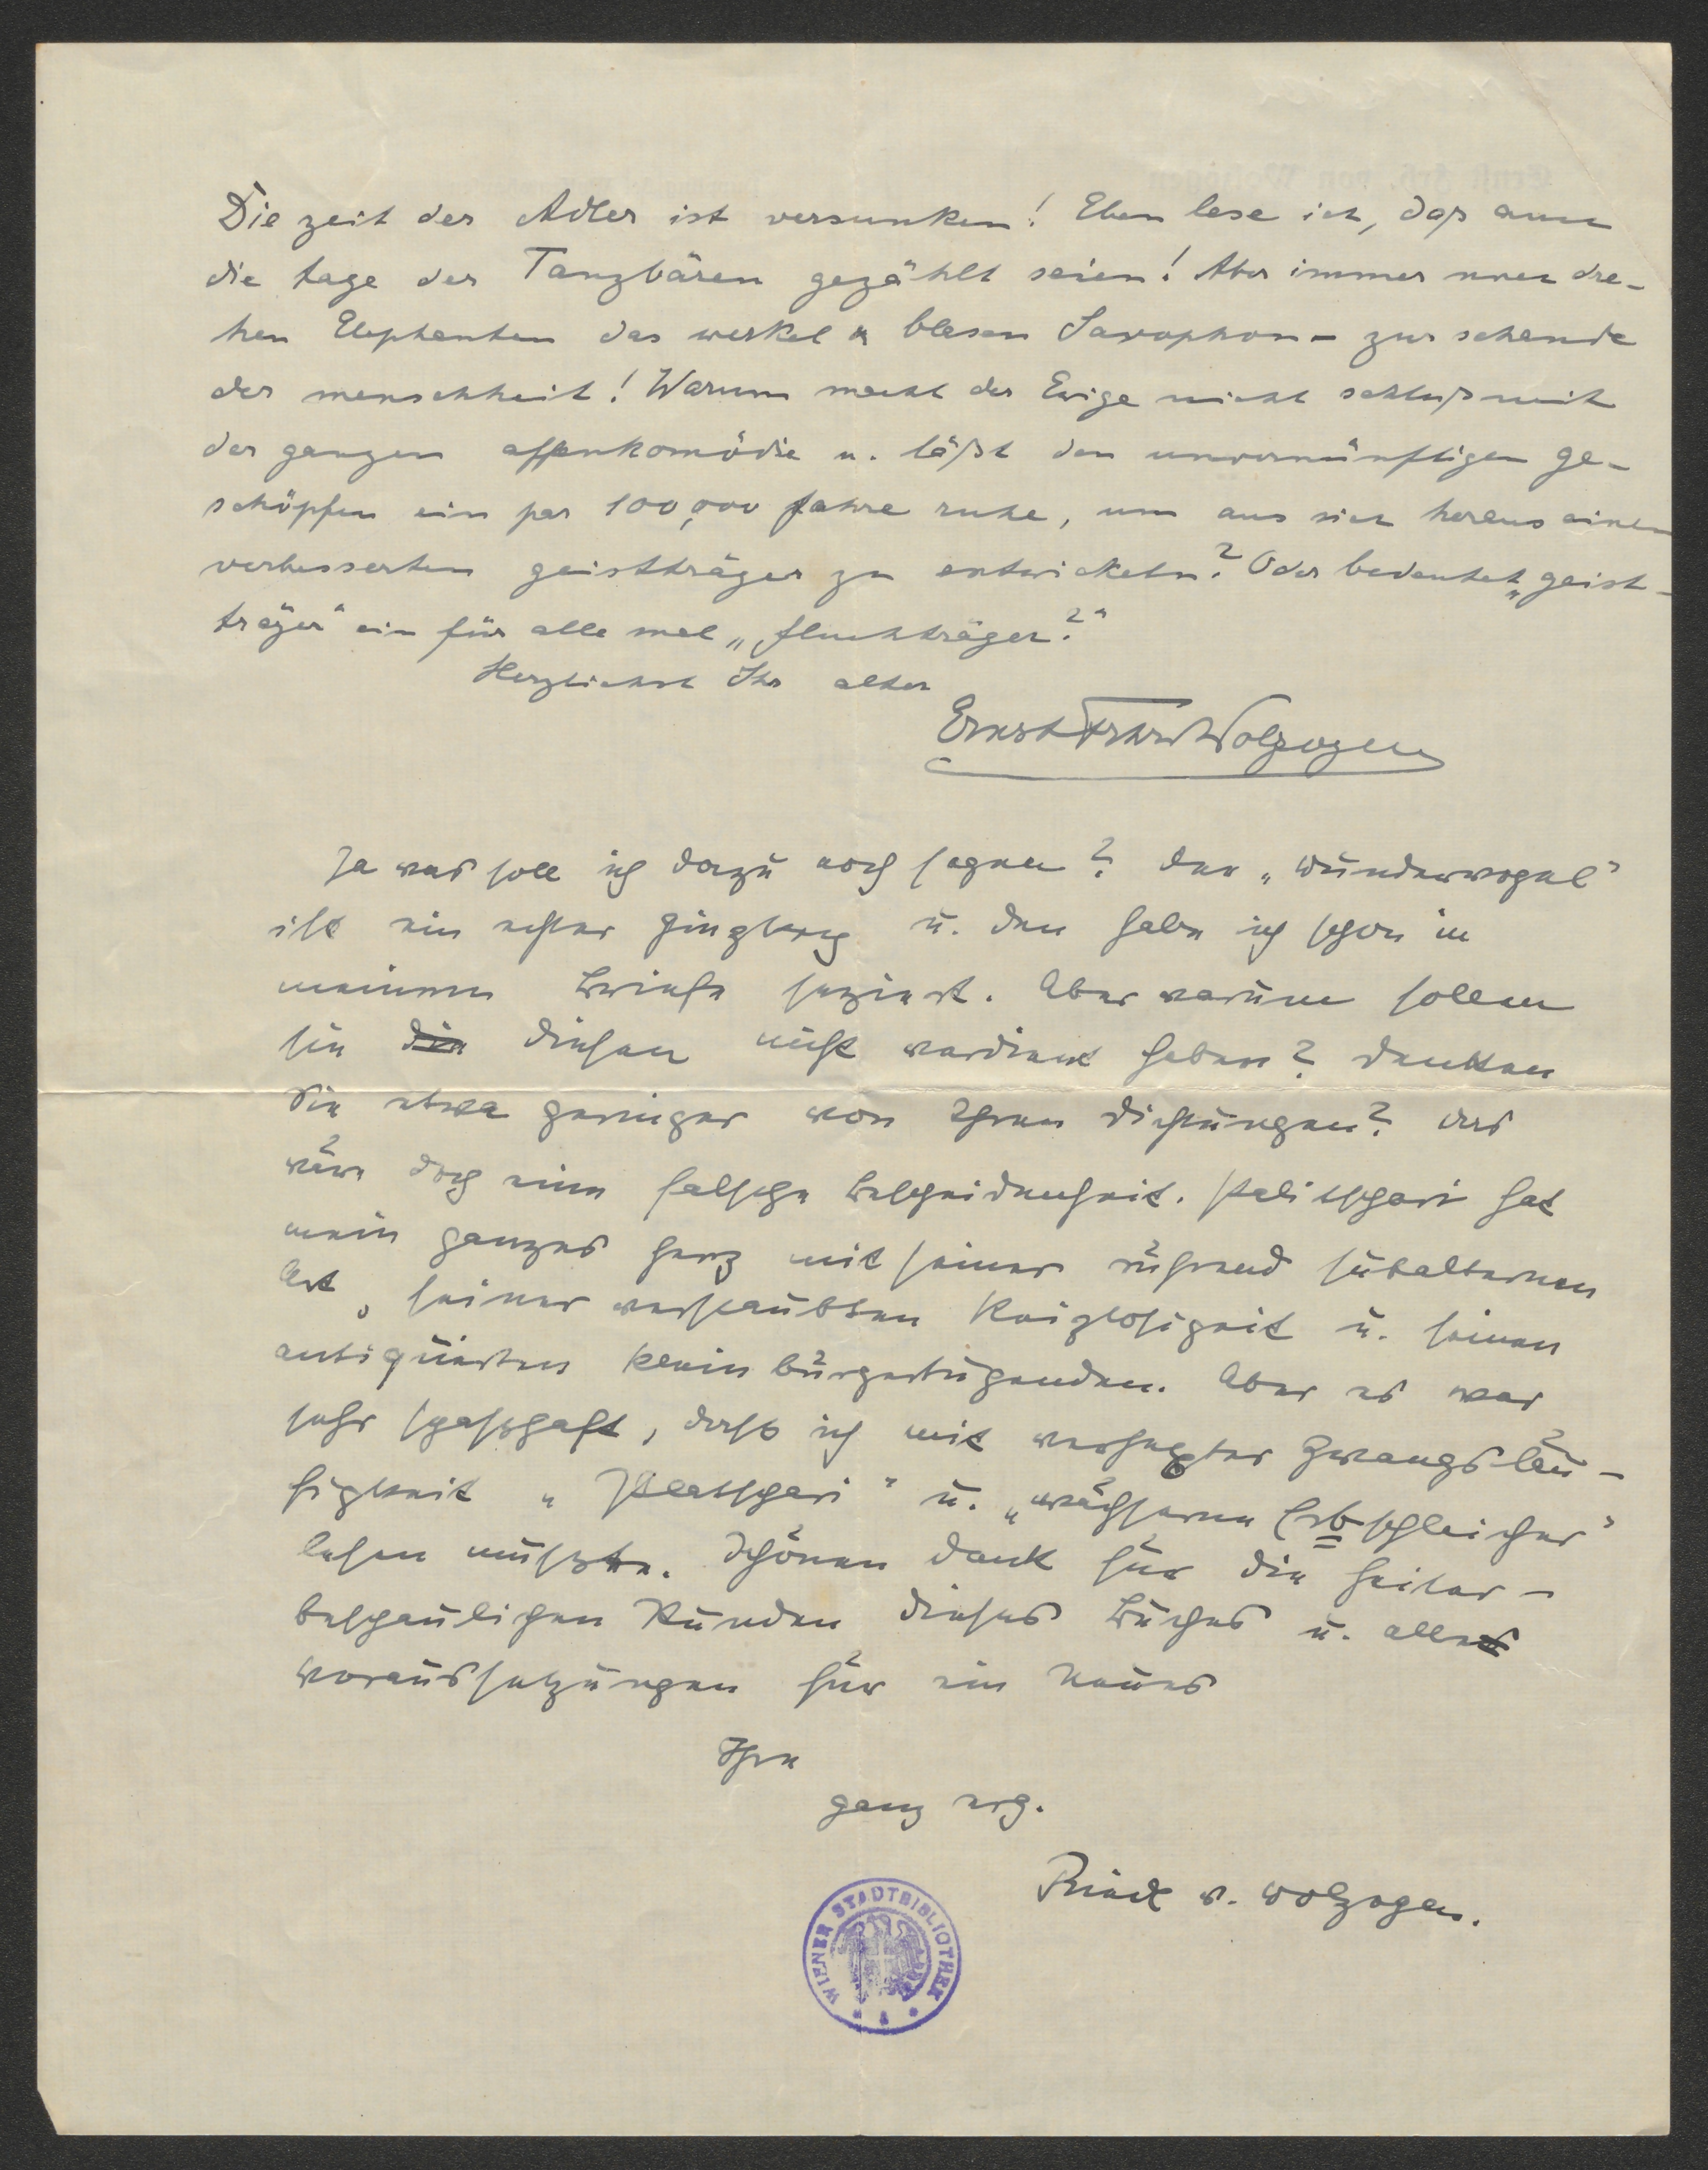 Die zeit der Adler ist versunken! Eben lese ich, daß auch
die tage der Tanzbären gezählt seien! Aber immer noch dre-
hen Elephanten das werkel u blasen Saxophon – zur schande
der menschheit! Warum macht der Ewige nicht schluß mit
der ganzen affenkomödie u. läßt den unvernünftigen ge-
schöpfen ein par 100,000 Jahre ruhe, um aus sich heraus einen
verbesserten geistträger zu entwickeln? Oder bedeutet „geist-
träger“ ein für alle mal „fluchträger?“
Herzlichst Ihr alter
Ernst Frhr v Wolzogen
Ja was soll ich dazu noch sagen? Der „Wundervogel“
ist ein echter Ginzkey u. den habe ich schon in
meinem Briefe seziert. Aber warum sollen
sie die diesen nicht verdient haben? Denken
Sie etwa geringer von Ihren Dichtungen? Das
wäre doch eine falsche Bescheidenheit. hat
mein ganzes Herz mit seiner rührend subalternen
Art, seiner verstaubten Reizlosigkeit u. seinen
antiquierten Kleinbürgertugenden. Aber es war
sehr spasshaft, dass ich mit verhexter Zwangsläu-
figkeit „ “ u. „wächserne Erbschleicher“
lesen musste. Schönen Dank für die heiter-
beschaulichen Stunden dieses Buches u. alle
Voraussetzungen für ein Neues
Ihre
ganz erg.
v. Wolzogen.
WIENER STADTBIBLIOTHEK